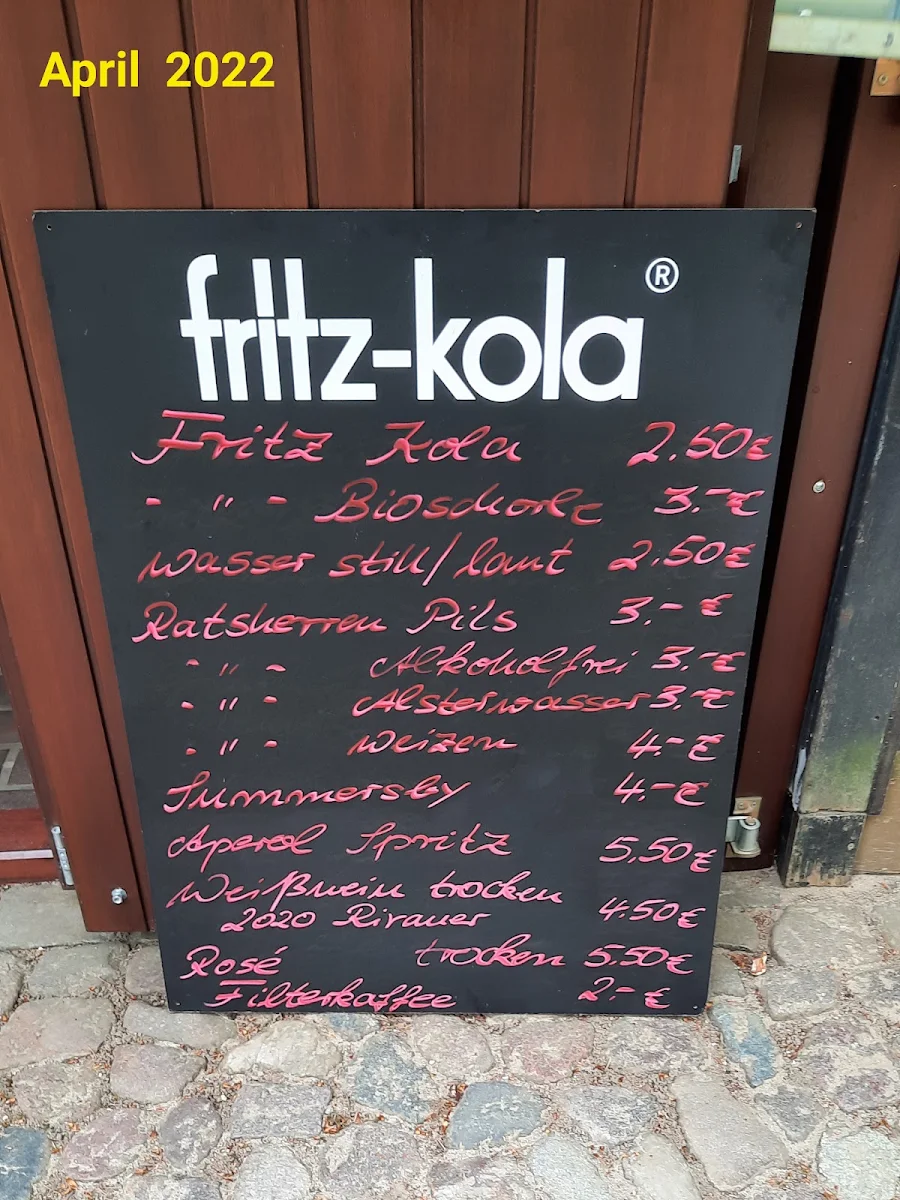 April 2022
fritz-kola®
Fritz Kola 2.50€
- " - Bioschorle 3.-€
Wasser still/laut 2.50€
Ratsherren Pils 3.- €
- " - Alkoholfrei 3.-€
- " - Alsterwasser 3.-€
- " - Weizen 4.-€
Summersby 4.-€
Aperol Spritz 5.50€
Weißwein trocken
2020 Rivaner 4.50€
Rosé trocken 5.50€
Filterkaffee 2.- €